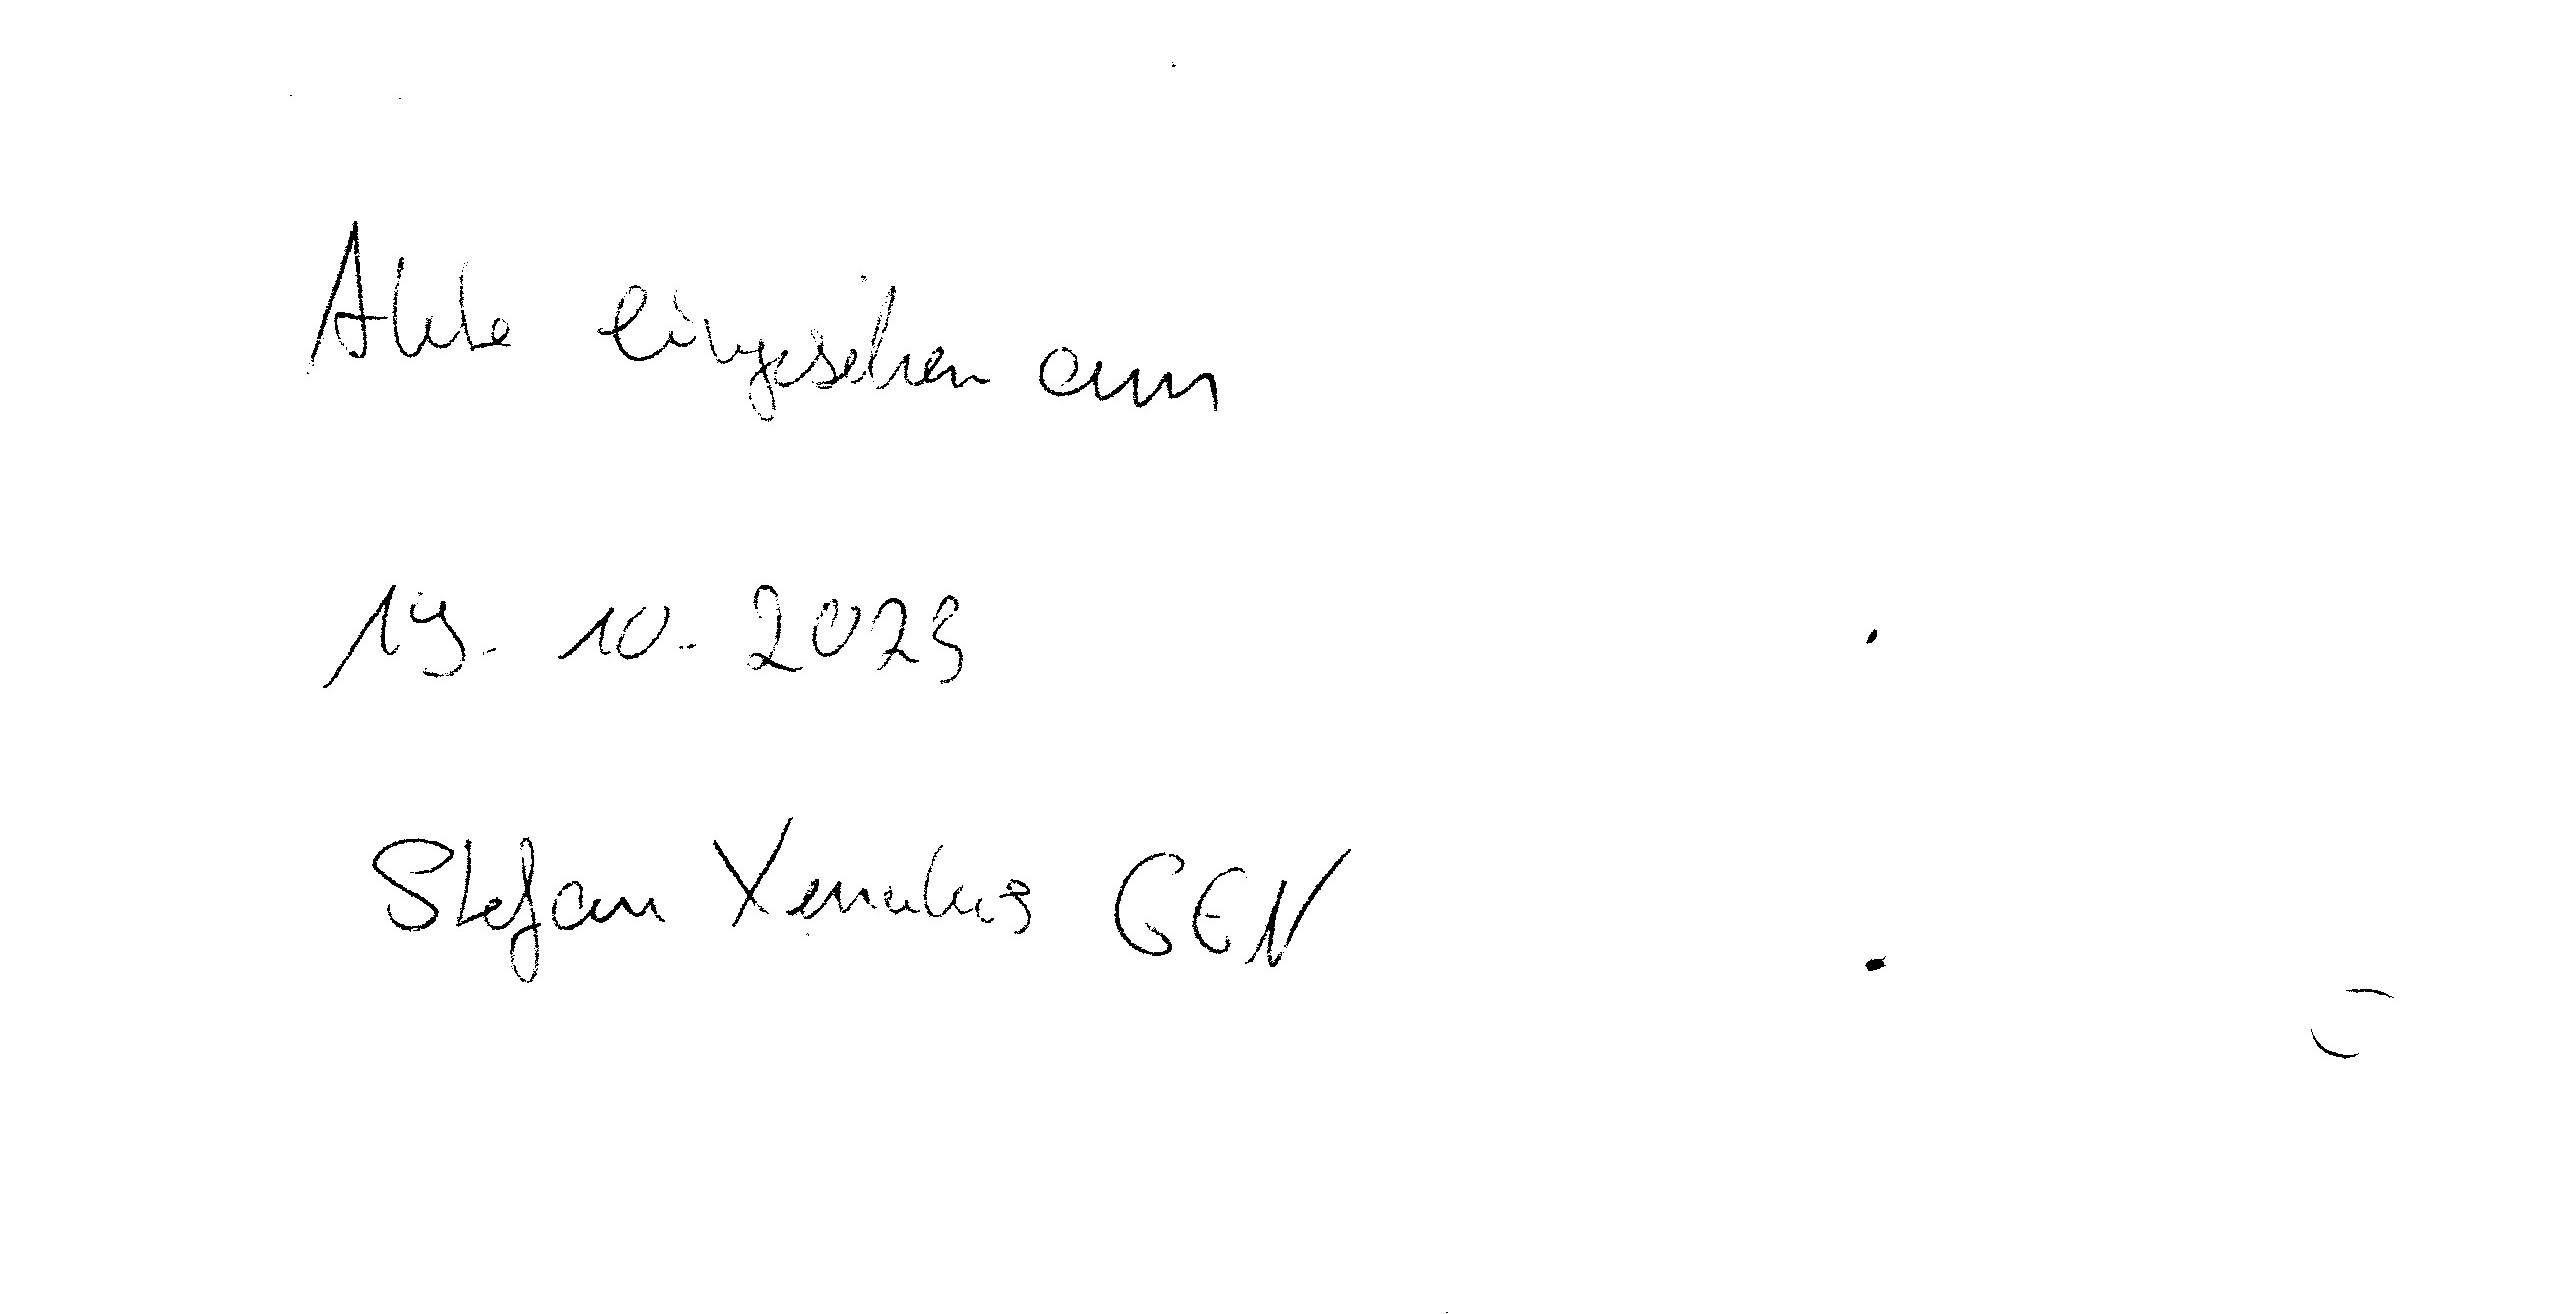 Akte eingesehen am
19. 10. 2023
Stefan Xenakis GEN